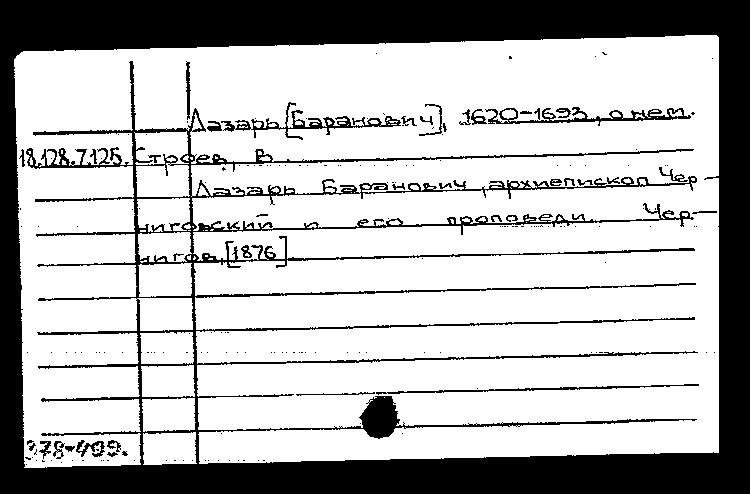 Лазарь [Баранович], 1620-1693, о нем.
18.128.7.125. Строев, В.
Лазарь Баранович, архиепископ Чер-
ниговский и его проповеди. Чер-
нигов, [1876]
378-409.